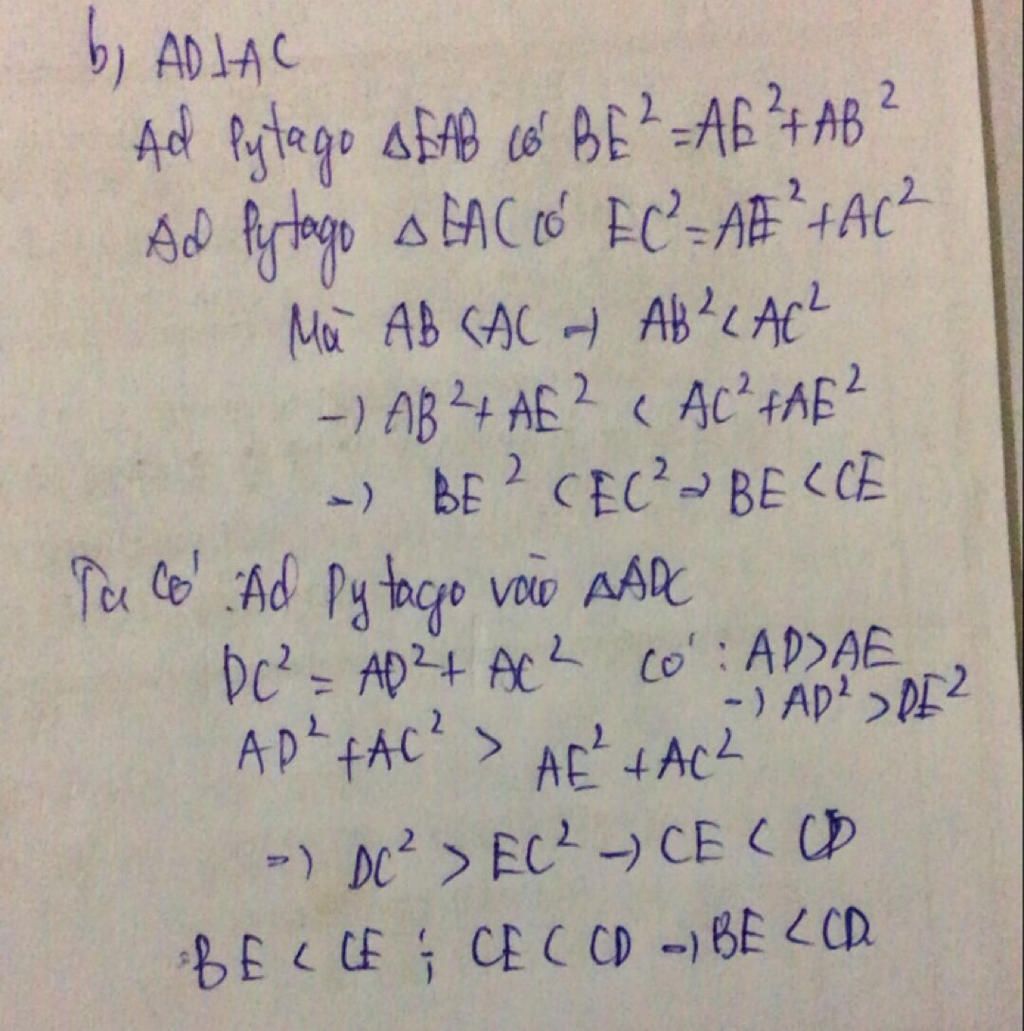 b) AD⊥AC
Ad Pytago ΔEAB có BE² = AE² + AB²
Ad Pytago ΔEAC có EC² = AE² + AC²
Mà AB < AC → AB² < AC²
→ AB² + AE² < AC² + AE²
→ BE² < EC² → BE < CE
Ta có : Ad Pytago vào ΔADC
DC² = AD² + AC² có : AD > AE
→ AD² > DE²
AD² + AC² > AE² + AC²
=> DC² > EC² → CE < CD
BE < CE ; CE < CD → BE < CD